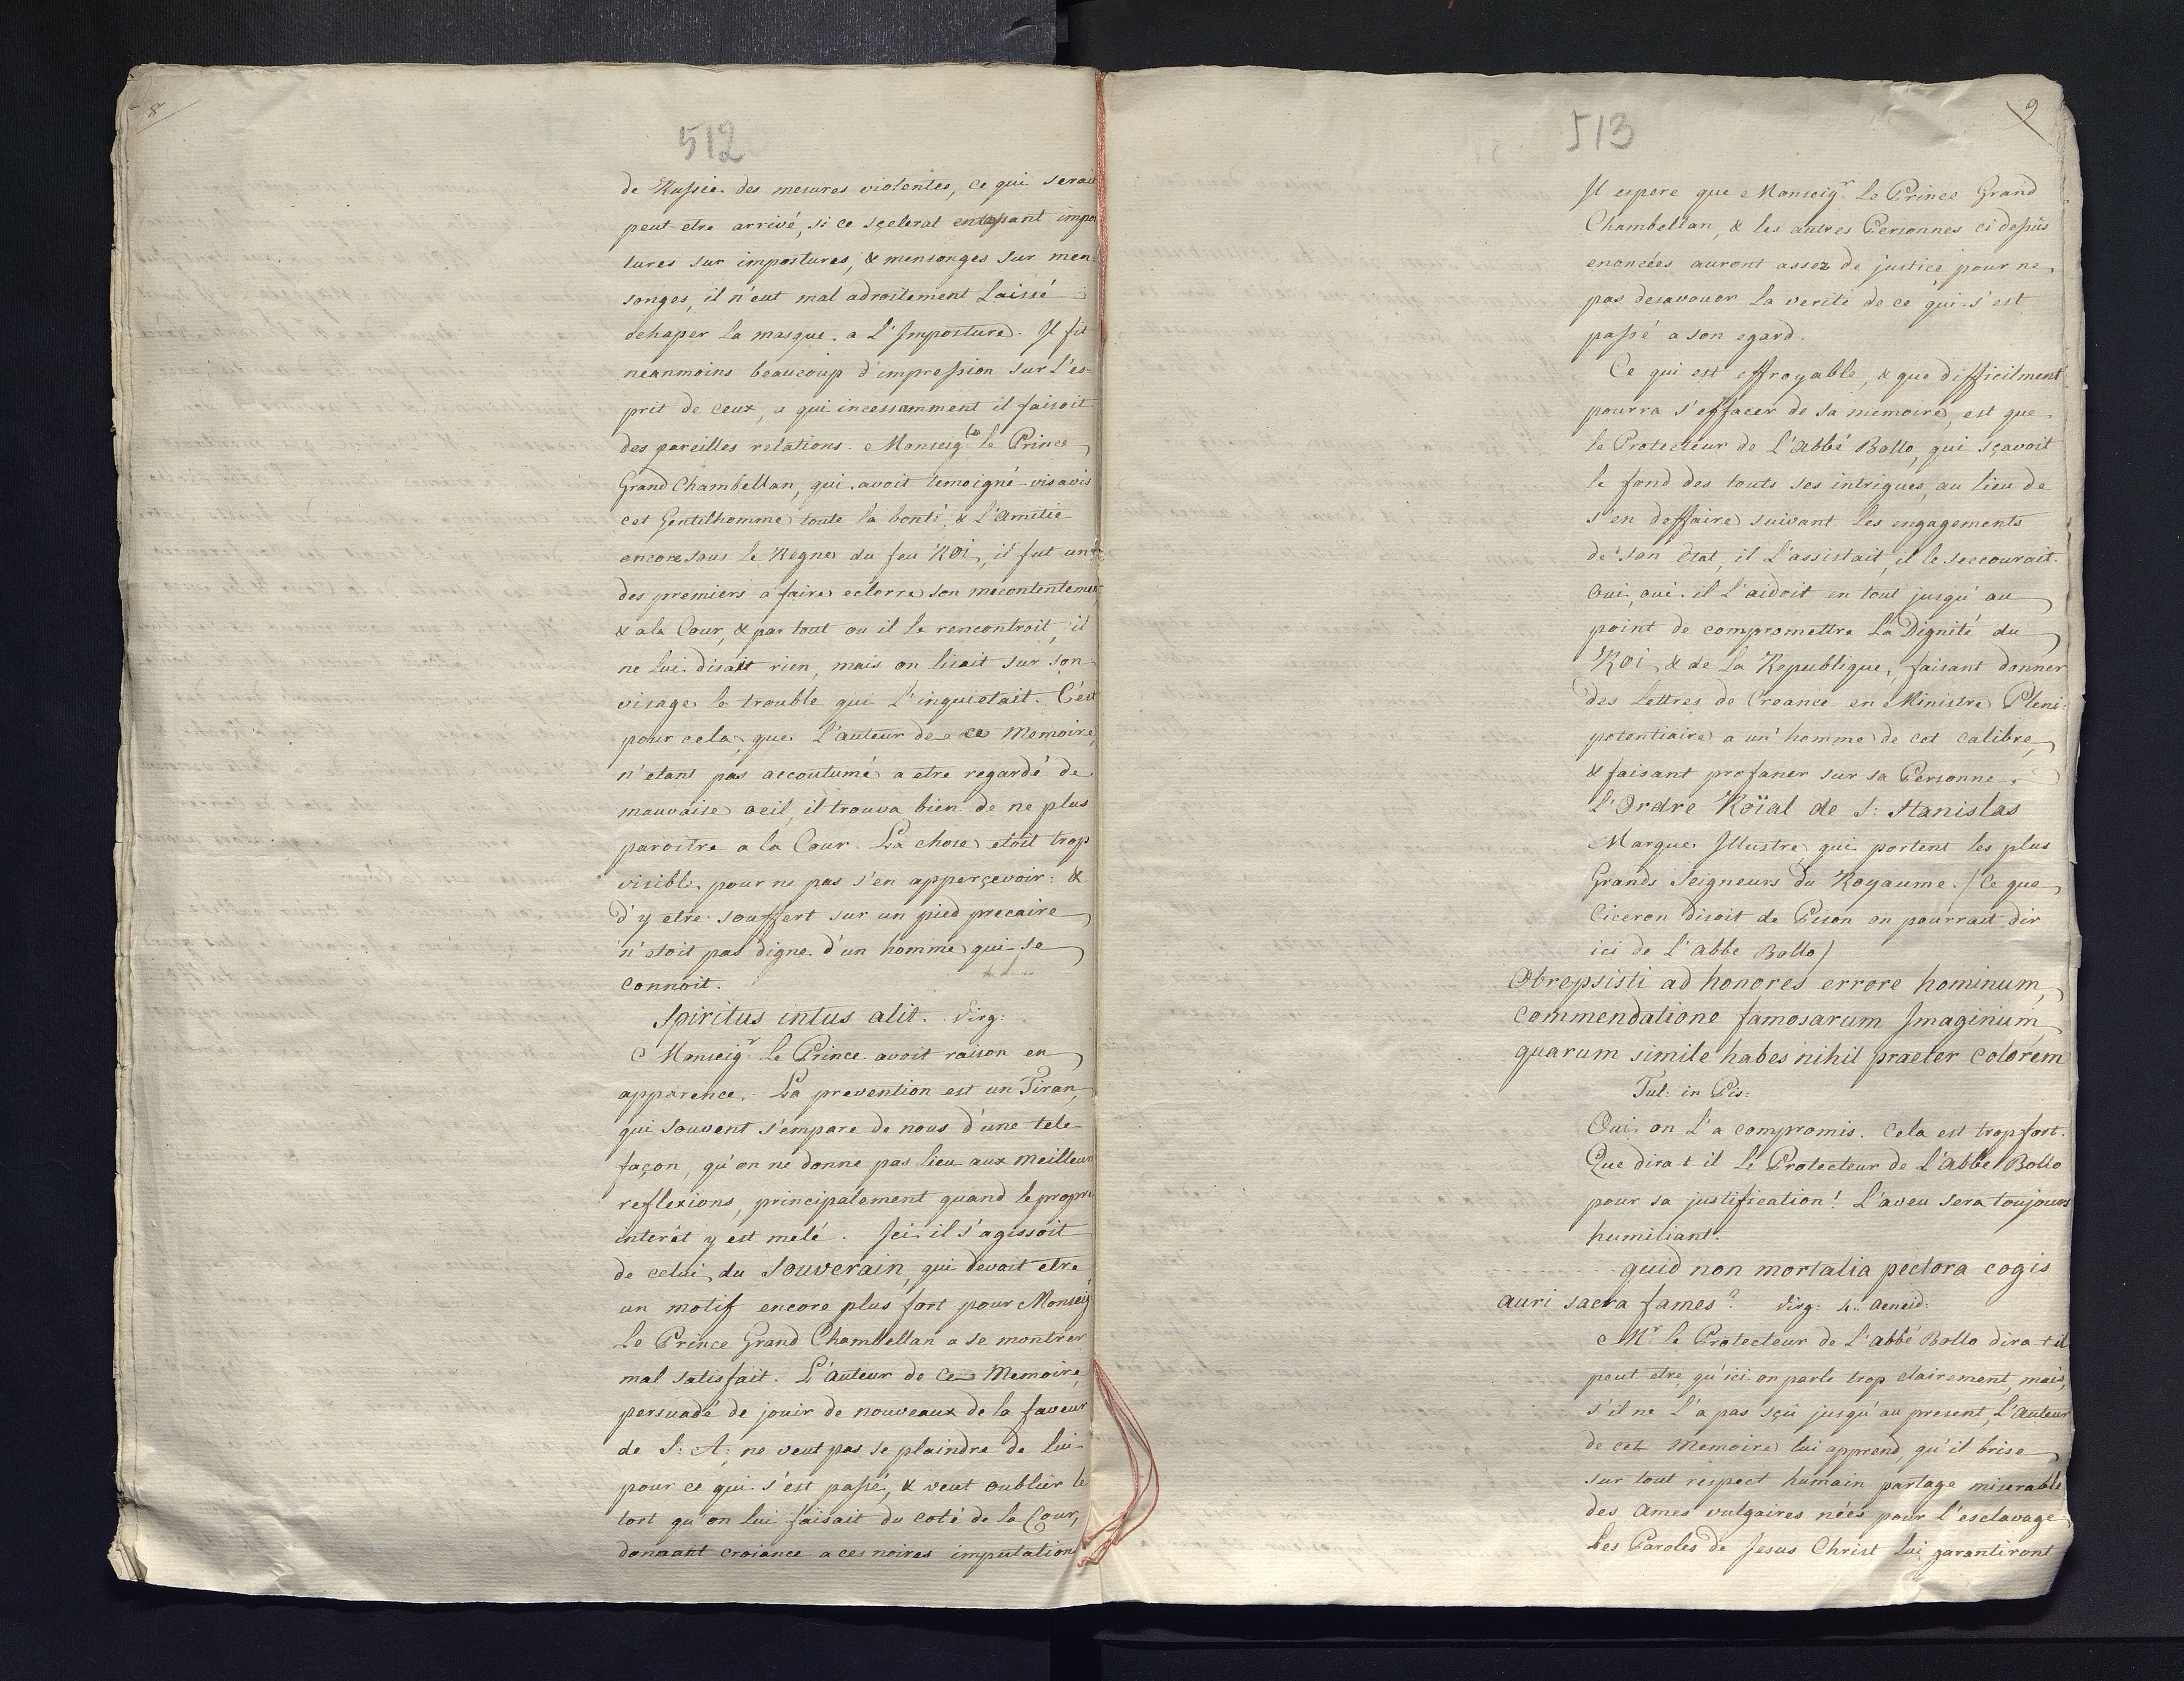 8
512
de Russie des mesures violentes, ce qui serait
peut-etre arrivé, si ce sçelerat entassant impos
tures sur impostures, & mensonges sur men-
songes, il n'eut mal adroitement laissé
echaper la masque a l'Imposture. Il fit
neanmoins beaucoup d'impression sur l'es=
prit de ceux, a qui incessamment il faisoit
des pareilles relations. Monseigr. le Prince
Grand Chambellan, qui avoit temoigné visavis
cet Gentilhomme toute la bonté, & l'Amitie
encore sous le Regne du feu ROI, il fut un
des premiers a faire eclorre son mecontentement
& a la Cour, & par tout ou il le rencontroit, il
ne lui disait rien, mais on lisait sur son
visage le trouble qui l'inquietait. C'est
pour cela, que l'auteur de ce Memoire,
n'etant pas accoutumé a etre regardé de
mauvaise oeil, il trouva bien de ne plus
paroitre a la Cour. La chose etoit trop
visible, pour ne pas s'en apperçevoir: &
d'y etre souffert sur un pied precaire
n'etoit pas digne d'un homme qui se
connoit.
Spiritus intus alit. Virg:
Monseigr. le Prince avoit raison en
apparence. La prevention est un Tiran,
qui souvent s'empare de nous d'une tele
façon, qu'on ne donne pas lieu aux meilleurs
reflexions, principalement quand le propre
interêt y est melé. Ici il s'agissoit
de celui du Souverain, qui devait etre
un motif encore plus fort pour Monseigr
le Prince Grand Chambellan a se montrer
mal satisfait. L'auteur de ce Memoire,
persuadé de jouir de nouveaux de la faveur
de S: A: ne veut pas se plaindre de lui
pour ce qui s'est passé, & veut oublier le
tort qu'on lui faisait du coté de la Cour,
donnant croiance a ces noires imputations
9
513
Il espere que Monseigr. le Prince Grand
Chambellan, & les autres Personnes ci dessus
enoncées auront assez de justice pour ne
pas desavouer la verité de ce qui s'est
passé a son egard.
Ce qui est effroyable, & que difficilment
pourra s'effacer de sa memoire, est que
le Protecteur de l'Abbé Bollo, qui sçavoit
le fond des touts ses intrigues, au lieu de
s'en deffaire suivant les engagements
de son état, il l'assistait, il le seccourait.
Oui, oui il l'aidoit en tout jusqu'au
point de compromettre la Dignité du
ROI, & de la Republique, faisant donner
des Lettres de Creance en Ministre Pleni=
potentiaire a un' homme de cet calibre,
& faisant profaner sur sa Personne
l'Ordre Roïal de S: Stanislas
Marque Illustre, qui portent les plus
Grands Seigneurs du Royaume. (Ce que
Ciceron disoit de Pison on pourrait dir
ici de l'Abbe Bollo)
Obrepsisti ad honores errore hominum,
commendatione famosarum Imaginum,
quarum simile habes nihil praeter colorem
Tul: in Pis:
Oui, on l'a compromis. Cela est trop fort.
Que dira-t-il le Protecteur de l'Abbé Bollo
pour sa justification! L'aveu sera toujours
humiliant.
quid non mortalia pectora cogis
auri sacra fames? Virg: 4. Aeneid:
Mr. le Protecteur de l'abbé Bollo dira-t-il
peut etre, qu'ici on parle trop clairement, mais,
s'il ne l'a pas sçû jusqu'au present, l'Auteur
de cet Memoire lui apprend, qu'il brise
sur tout respect humain partage miserable
des ames vulgaires nées pour l'esclavage
Les Paroles de Jesus Christ lui garantiront